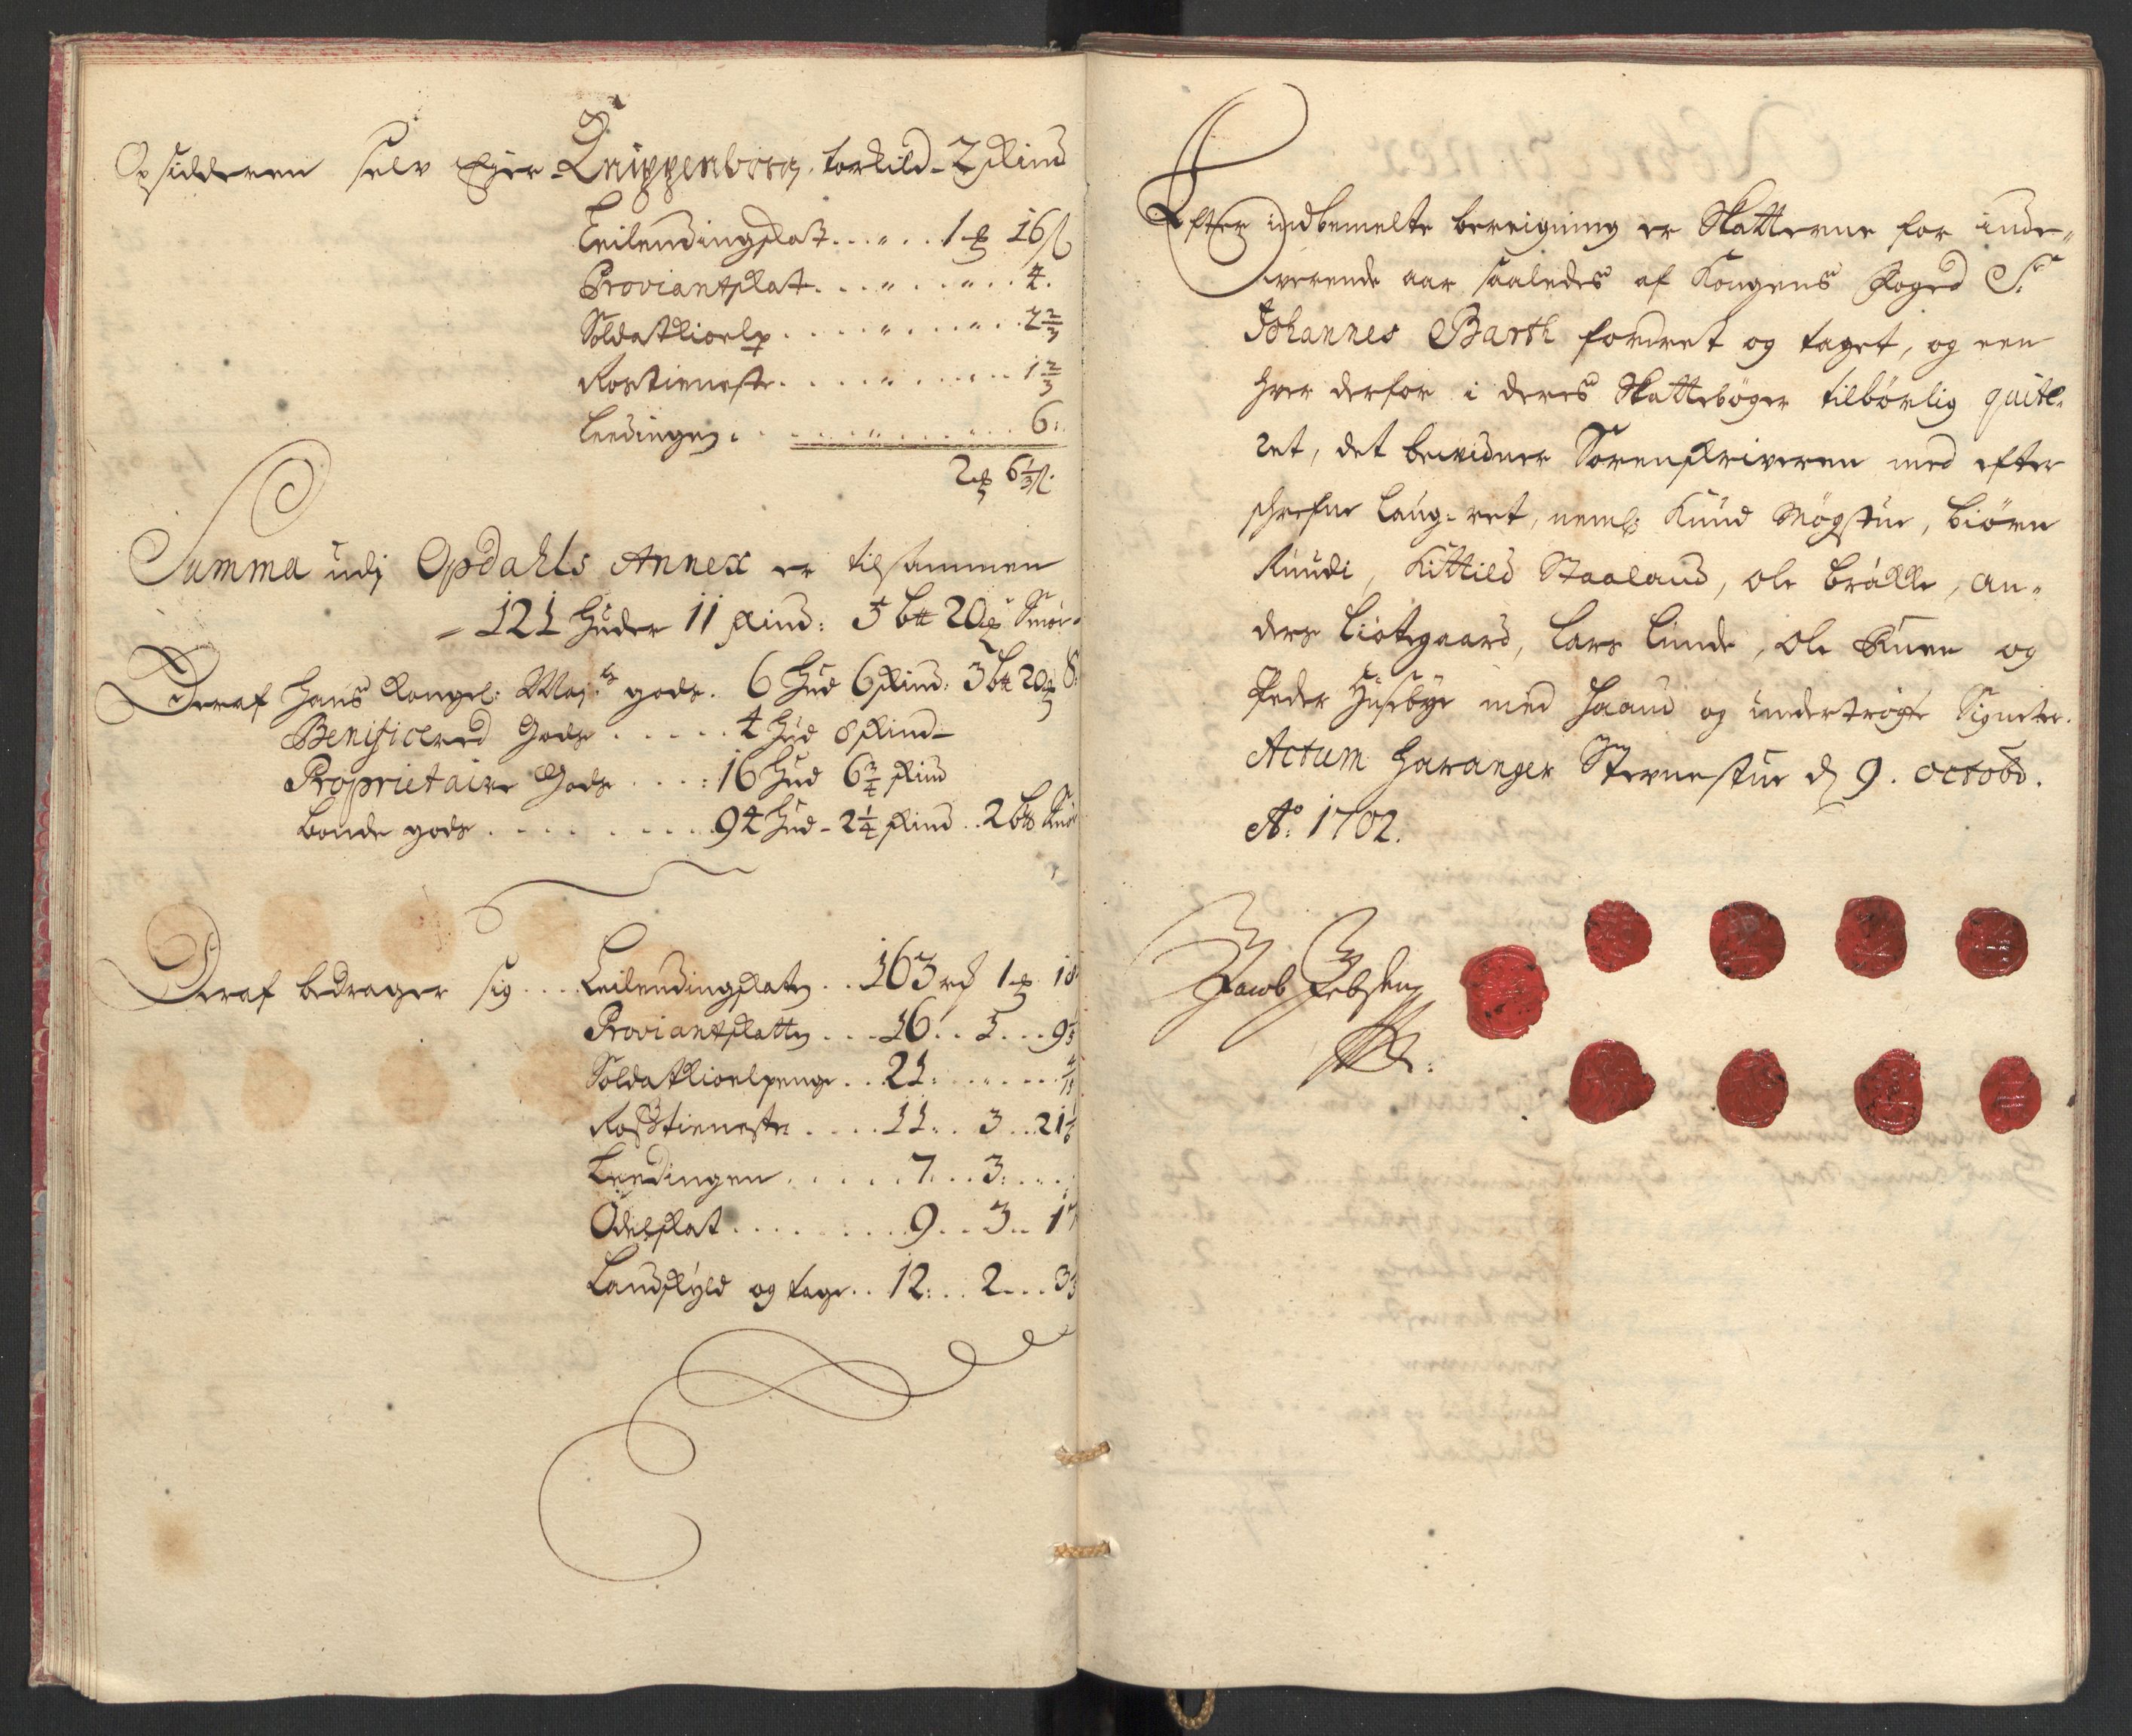 Opsidderen selv Ejer Knippenborg, torkild - 2 skind
Leilendingskat . . . 1 16 ß
Proviantskat . . . 4.
Soldatkioelp . . . 2 2/3
Rostieneste . . . 1 2/3
Leedingen . . . 6:
2 6 1/3 ß.
Summa udj Opdahls Annex er tilsammen
121 huder 11 skind: 5 20 Smør
Deraf Hans Kongel: Maj.ts gods. 6 hud 6 skind: 3 20 S.
Benificered Gods . . . 4 hud 8 skind
Proprietaire Gods . . . 16 hud 6 3/4 skind
Bonde gods . . . 94 hud - 2 1/4 skind . . 2 Smør
Deraf bedrager sig . . . Leilendingskaten . . 163 rd 1 18
Proviantskatten . . . 16 . . 1 . . . 9
Soldatkioelpenge . . 21: . . .
Rosstieneste . . . 11: . . 3 . . 21
Leedingen . . . 7 . . . 3: . . .
Odelskat . . . 9 . . . 3 . . 17
Landskyld og tage . . 12: . . 2 . . . 3
Efter indbemelte bereigning er Skatterne for inde-
verende aar saaledes af Kongens Foged Sr
Johannes Barth fordret og taget, og een
hver derfor i deres Skattebøger tilbørlig quite-
ret, det bevidner Sorenskriveren med efter
schrefne Laug-ret, neml: Knud Møgstue, Biørn
Ruudi, Kittild Staaland, Ole Brække, An-
ders Liotegaard, Lars Lunde, Ole Ruen og
Peder Husebye med haand og undertrøgte Signeter.
Actum Haranger Stevnestue d. 9. octobr.
Ao. 1702.
Jacob Jebsen